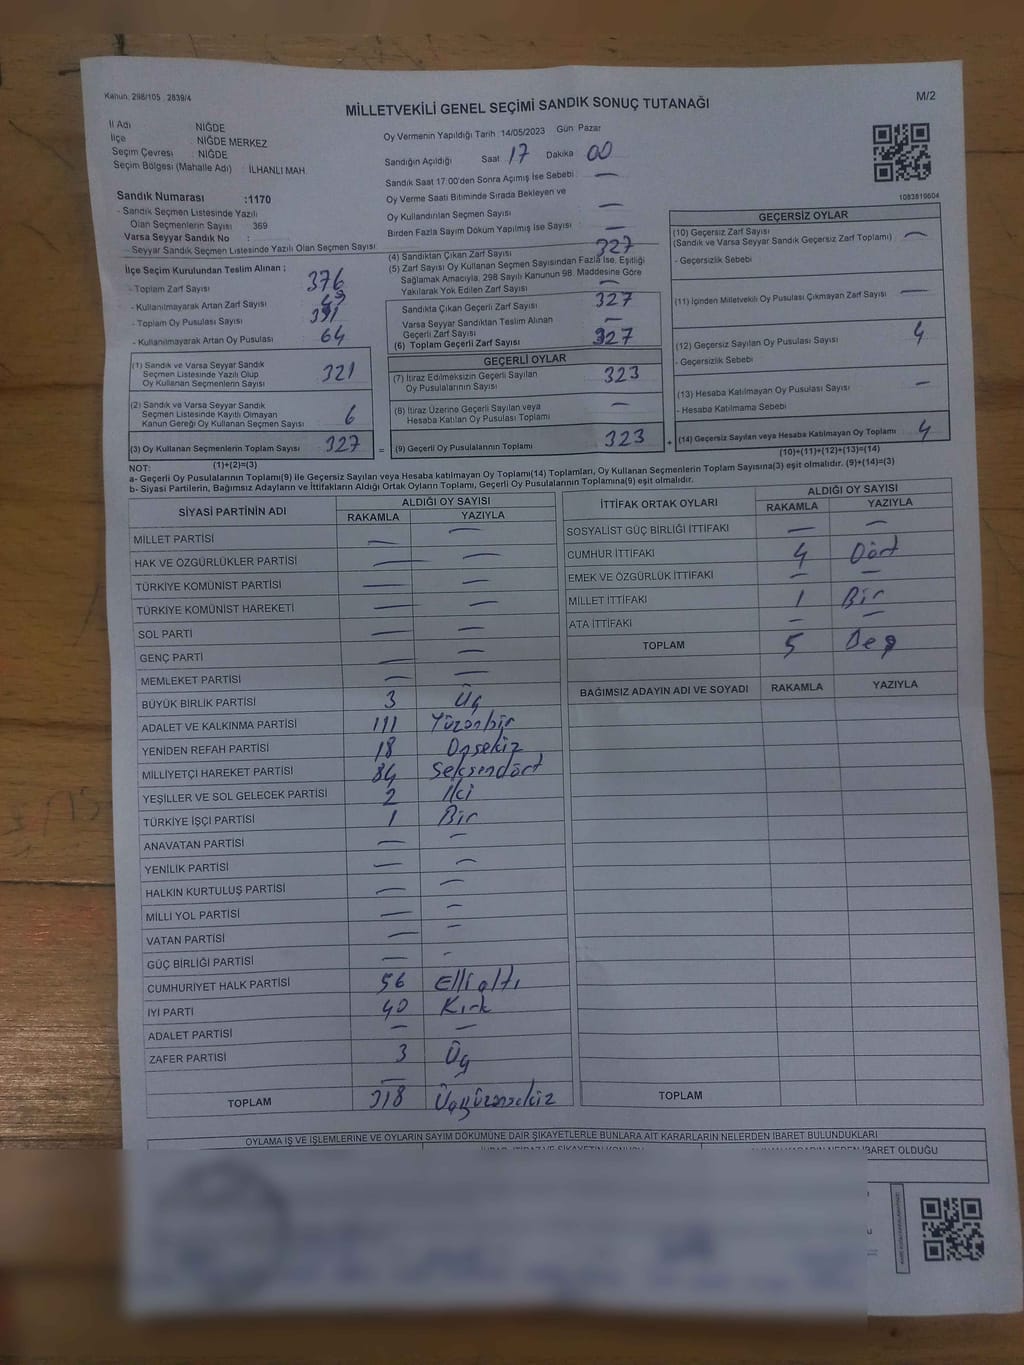 Kanun. 298/105 . 2839/4
M/2
MİLLETVEKİLİ GENEL SEÇİMİ SANDIK SONUÇ TUTANAĞI
İl Adı NİĞDE
İlçe NİĞDE MERKEZ
Seçim Çevresi : NİĞDE
Seçim Bölgesi (Mahalle Adı) : İLHANLI MAH
Sandık Numarası :1170
- Sandık Seçmen Listesinde Yazılı
Olan Seçmenlerin Sayısı : 369
Varsa Seyyar Sandık No :
- Seyyar Sandık Seçmen Listesinde Yazılı Olan Seçmen Sayısı
İlçe Seçim Kurulundan Teslim Alınan ;
- Toplam Zarf Sayısı 376
- Kullanılmayarak Artan Zarf Sayısı
- Toplam Oy Pusulası Sayısı 391
- Kullanılmayarak Artan Oy Pusulası 64
(1) Sandık ve Varsa Seyyar Sandık
Seçmen Listesinde Yazılı Olup
Oy Kullanan Seçmenlerin Sayısı 321
(2) Sandık ve Varsa Seyyar Sandık
Seçmen Listesinde Kayıtlı Olmayan
Kanun Gereği Oy Kullanan Seçmen Sayısı 6
(3) Oy Kullanan Seçmenlerin Toplam Sayısı 327
(1)+(2)=(3)
Oy Vermenin Yapıldığı Tarih : 14/05/2023 Gün Pazar
Sandığın Açıldığı Saat 17 Dakika 00
Sandık Saat 17:00'den Sonra Açımış İse Sebebi : —
Oy Verme Saati Bitiminde Sırada Bekleyen ve
Oy Kullandırılan Seçmen Sayısı —
Birden Fazla Sayım Döküm Yapılmış İse Sayısı —
(4) Sandıktan Çıkan Zarf Sayısı 327
(5) Zarf Sayısı Oy Kullanan Seçmen Sayısından Fazla İse, Eşitliği
Sağlamak Amacıyla, 298 Sayılı Kanunun 98. Maddesine Göre
Yakılarak Yok Edilen Zarf Sayısı —
Sandıkta Çıkan Geçerli Zarf Sayısı 327
Varsa Seyyar Sandıktan Teslim Alınan
Geçerli Zarf Sayısı —
(6) Toplam Geçerli Zarf Sayısı 327
GEÇERLİ OYLAR
(7) İtiraz Edilmeksizin Geçerli Sayılan
Oy Pusulalarının Sayısı 323
(8) İtiraz Üzerine Geçerli Sayılan veya
Hesaba Katılan Oy Pusulası Toplamı —
= (9) Geçerli Oy Pusulalarının Toplamı 323
1083819604
GEÇERSİZ OYLAR
(10) Geçersiz Zarf Sayısı
(Sandık ve Varsa Seyyar Sandık Geçersiz Zarf Toplamı) —
- Geçersizlik Sebebi
(11) İçinden Milletvekili Oy Pusulası Çıkmayan Zarf Sayısı —
(12) Geçersiz Sayılan Oy Pusulası Sayısı 4
- Geçersizlik Sebebi
(13) Hesaba Katılmayan Oy Pusulası Sayısı —
- Hesaba Katılmama Sebebi
+ (14) Geçersiz Sayılan veya Hesaba Katılmayan Oy Toplamı 4
(10)+(11)+(12)+(13)=(14)
NOT:
a- Geçerli Oy Pusulalarının Toplamı(9) ile Geçersiz Sayılan veya Hesaba katılmayan Oy Toplamı(14) Toplamları, Oy Kullanan Seçmenlerin Toplam Sayısına(3) eşit olmalıdır. (9)+(14)=(3)
b- Siyasi Partilerin, Bağımsız Adayların ve İttifakların Aldığı Ortak Oyların Toplamı, Geçerli Oy Pusulalarının Toplamına(9) eşit olmalıdır.
SİYASİ PARTİNİN ADI ALDIĞI OY SAYISI
RAKAMLA YAZIYLA
MİLLET PARTİSİ — —
HAK VE ÖZGÜRLÜKLER PARTİSİ — —
TÜRKİYE KOMÜNİST PARTİSİ — —
TÜRKİYE KOMÜNİST HAREKETİ — —
SOL PARTİ — —
GENÇ PARTİ — —
MEMLEKET PARTİSİ — —
BÜYÜK BİRLİK PARTİSİ 3 Üç
ADALET VE KALKINMA PARTİSİ 111 Yüzonbir
YENİDEN REFAH PARTİSİ 18 Onsekiz
MİLLİYETÇİ HAREKET PARTİSİ 84 Seksendört
YEŞİLLER VE SOL GELECEK PARTİSİ 2 İki
TÜRKİYE İŞÇİ PARTİSİ 1 Bir
ANAVATAN PARTİSİ — —
YENİLİK PARTİSİ — —
HALKIN KURTULUŞ PARTİSİ — —
MİLLİ YOL PARTİSİ — —
VATAN PARTİSİ — —
GÜÇ BİRLİĞİ PARTİSİ — -
CUMHURİYET HALK PARTİSİ 56 Elli altı
İYİ PARTİ 40 Kırk
ADALET PARTİSİ — —
ZAFER PARTİSİ 3 Üç
—
TOPLAM 318 Üçyüzonsekiz
İTTİFAK ORTAK OYLARI ALDIĞI OY SAYISI
RAKAMLA YAZIYLA
SOSYALİST GÜÇ BİRLİĞİ İTTİFAKI — —
CUMHUR İTTİFAKI 4 Dört
EMEK VE ÖZGÜRLÜK İTTİFAKI — —
MİLLET İTTİFAKI 1 Bir
ATA İTTİFAKI — —
TOPLAM 5 Beş
BAĞIMSIZ ADAYIN ADI VE SOYADI RAKAMLA YAZIYLA
TOPLAM
OYLAMA İŞ VE İŞLEMLERİNE VE OYLARIN SAYIM DÖKÜMÜNE DAİR ŞİKAYETLERLE BUNLARA AİT KARARLARIN NELERDEN İBARET BULUNDUKLARI
İBARET OLDUĞU